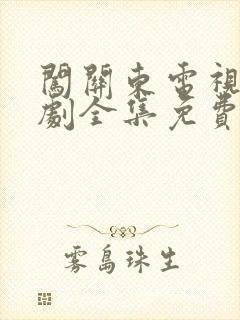 闖關東電視
劇全集免費
雾島珠生